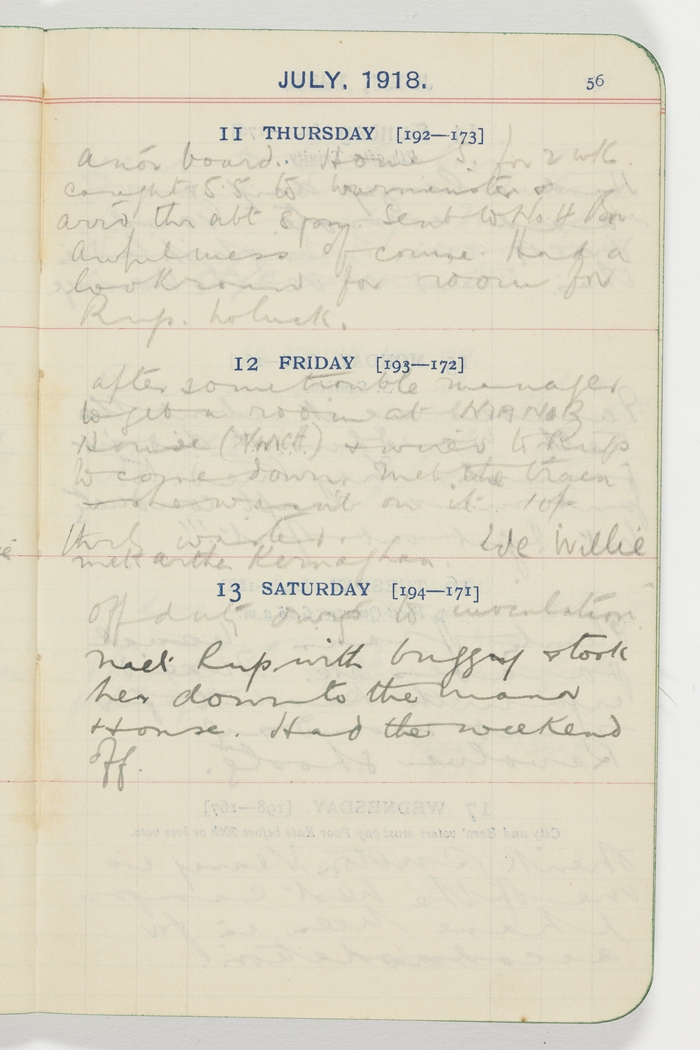 JULY, 1918.
56
11 THURSDAY [192—173]
anor board. Home S. for 2 wks.
caught 5.5 to Warminster &
arrd thr abt 8 pm. Sent to No. 4 Bn
Awfulness of course. Had a
look round for room for
Rup. No luck.
12 FRIDAY [193—172]
after some trouble manager
to get a room at MANOR
House (YMCA) & wired to Rup
to come down. Met the train
she wasn't on it.
Met Arthur Kernaghan. Lde Willie
13 SATURDAY [194—171]
Off duty owing to inoculation.
Met Rup with buggy & took
her down to the Manor
House. Had the weekend
off.